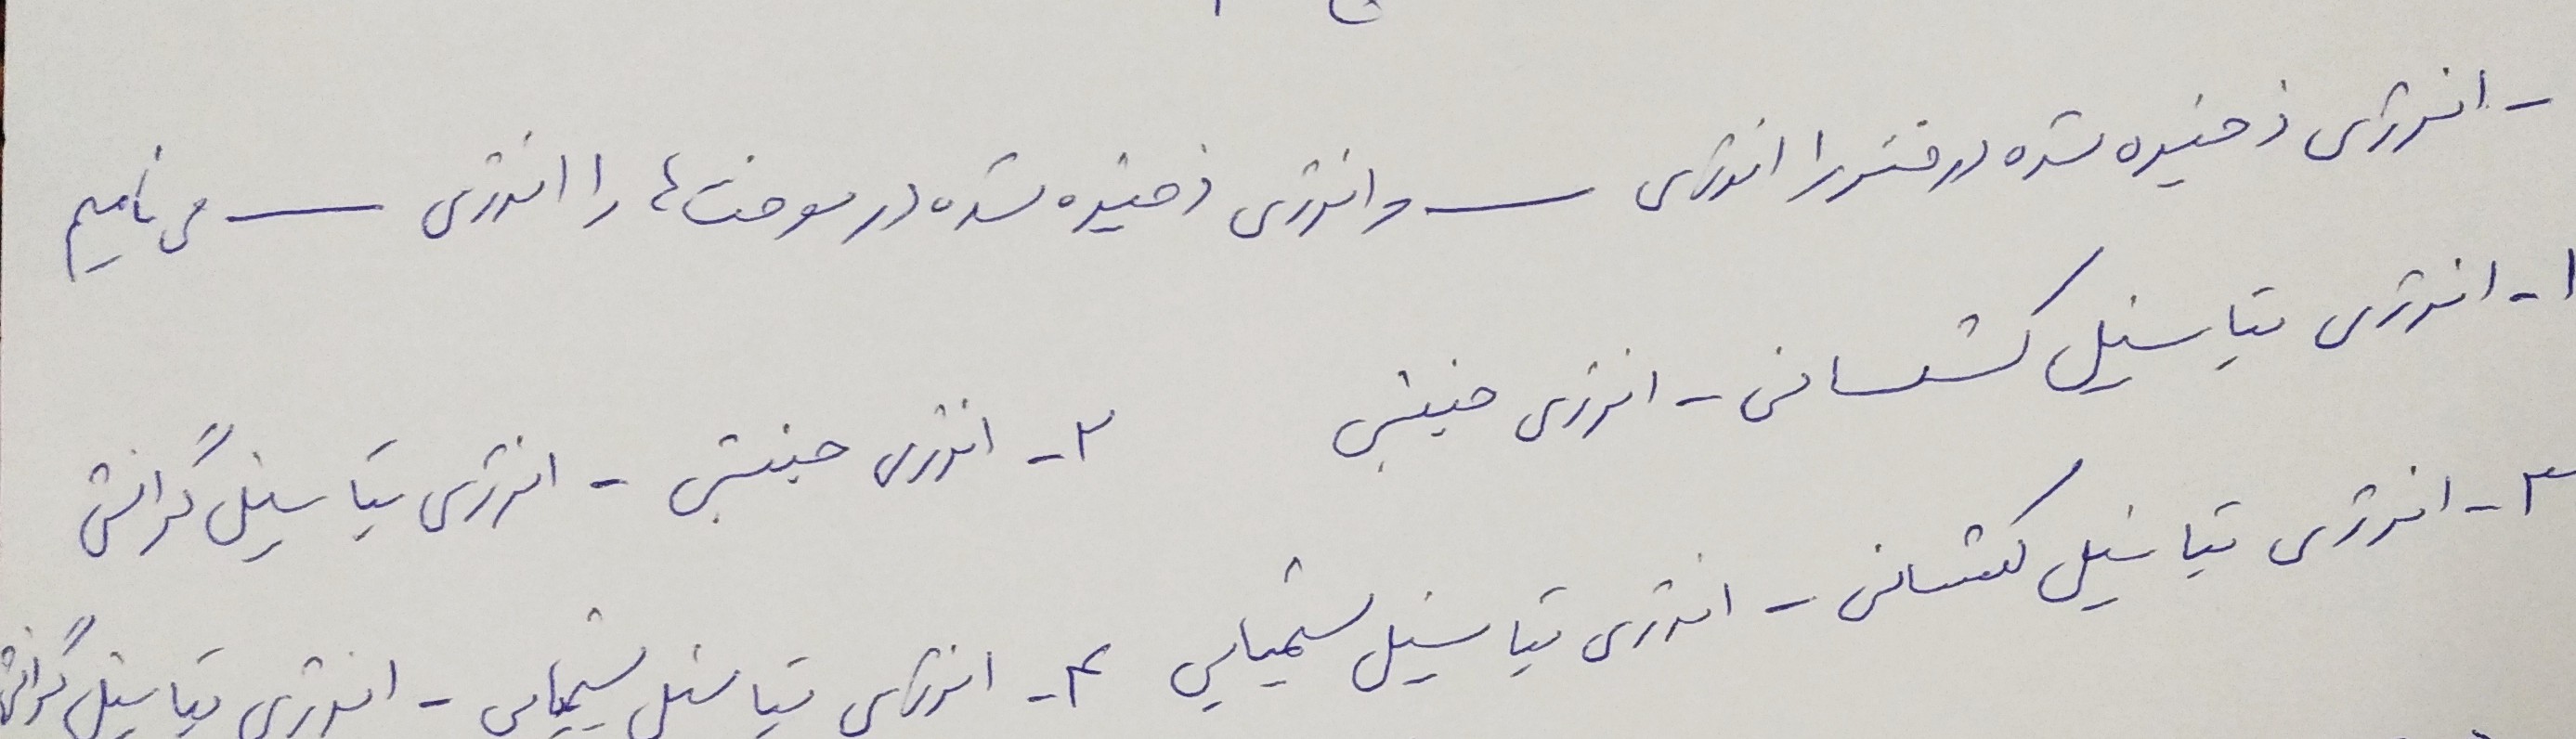 - انرژی ذخیره شده در فنر را انرژی ــــ و انرژی ذخیره شده در سوخت‌ها را انرژی ــــ می نامیم
۱- انرژی پتانسیل کشسانی - انرژی جنبشی ۲- انرژی جنبشی - انرژی پتانسیل گرانشی
۳- انرژی پتانسیل کشسانی - انرژی پتانسیل شیمیایی ۴- انرژی پتانسیل شیمیایی - انرژی پتانسیل گرانشی